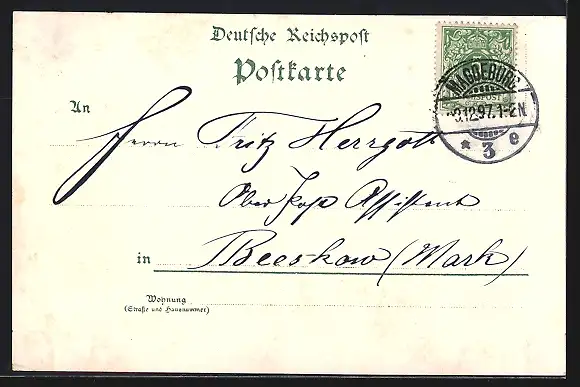 Deutsche Reichspost
Postkarte
MAGDEBURG
3.12.97. 1-2N
* 3 e
An
Herrn Fritz Herrgott
Ober Post Assistent
in Beeskow (Mark)
Wohnung
(Straße und Hausnummer)